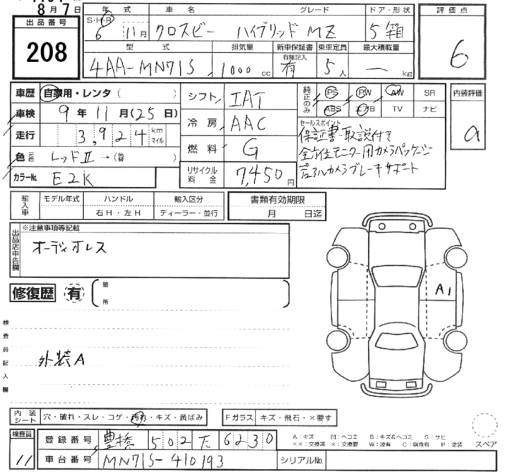 8月7日
出品番号
208
年式 車名 グレード ドア・形状
S・H・R 6年 11月 クロスビー ハイブリッド MZ 5 箱
型式 排気量 新車保証書 乗車定員 最大積載量
有権記入
4AA-MN71S 1000 cc 有 5人 kg
評価点
6
内装評価
a
車歴 自家用・レンタ( )
車検 9年 11月(25日)
走行 3,924 km マイル
色 レッドⅡ →(替 )
カラーNo. E2K
シフト IAT
冷房 AAC
燃料 G
リサイクル料金 7,450円
純正のみ
PS PW AW SR
ABS エアB TV ナビ
セールスポイント
保証書・取説付き
全方位モニター用カメラパッケージ
デュアルカメラブレーキサポート
輸入車 モデル年式 ハンドル 輸入区分
右H・左H ディーラー・並行
書類有効期限
月 日迄
出品店申告欄
※注意事項等記載
オーディオレス
修復歴 有 箇所
検査員記入欄
外装A
A1
内装シート 穴・破れ・スレ・コゲ・汚れ・キズ・黄ばみ
Fガラス キズ・飛石・×要す
検査員
11
登録番号 豊橋 502 た 6230
車台番号 MN71S-410193
シリアルNo.
A:キズ U:ヘコミ B:キズ&ヘコミ S:サビ
××:交換済 X:交換要 W:波有 C:腐食有 P:塗装
スペア